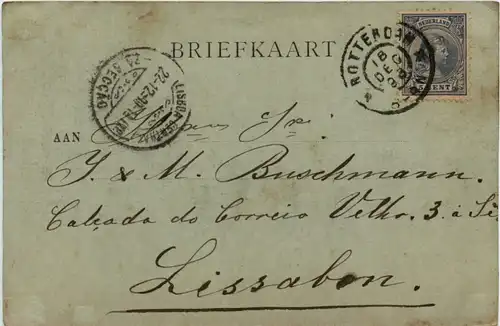 NEDERLAND
CENT
ROTTERDAM
18
DEC
BRIEFKAART
LISBOA CENTRAL
SECÇÃO
22-12
AAN
J. & M. Buschmann.
Calçada do Correio Velho. 3. á Sé
Lissabon.